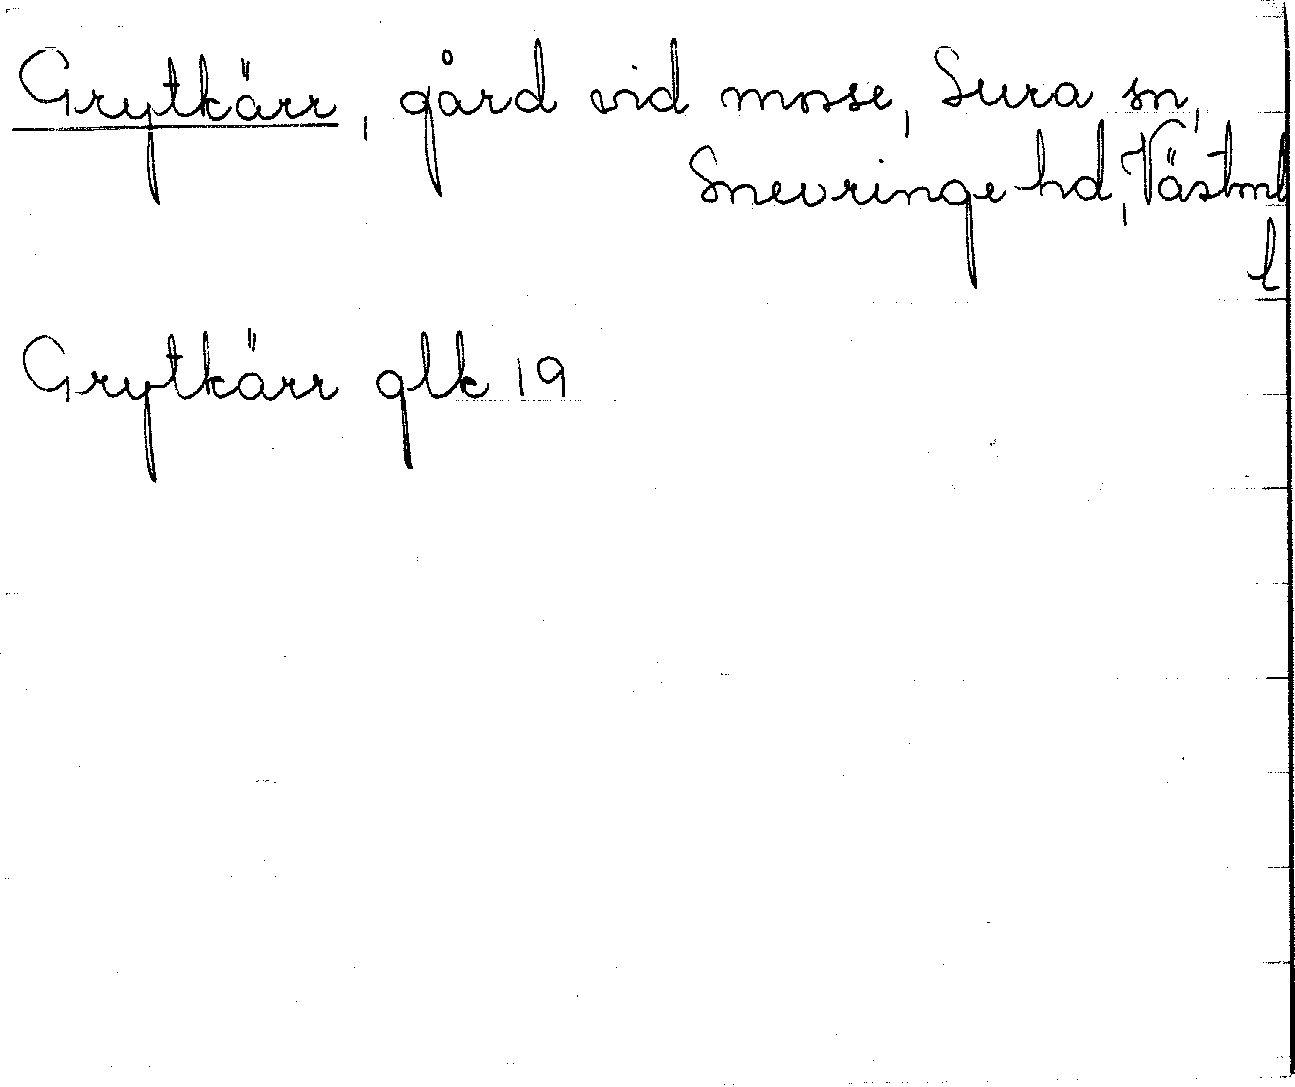 Grytkärr, gård vid mosse, Sura sn,
Snevringe hd, Västml
l
Grytkärr glk 19